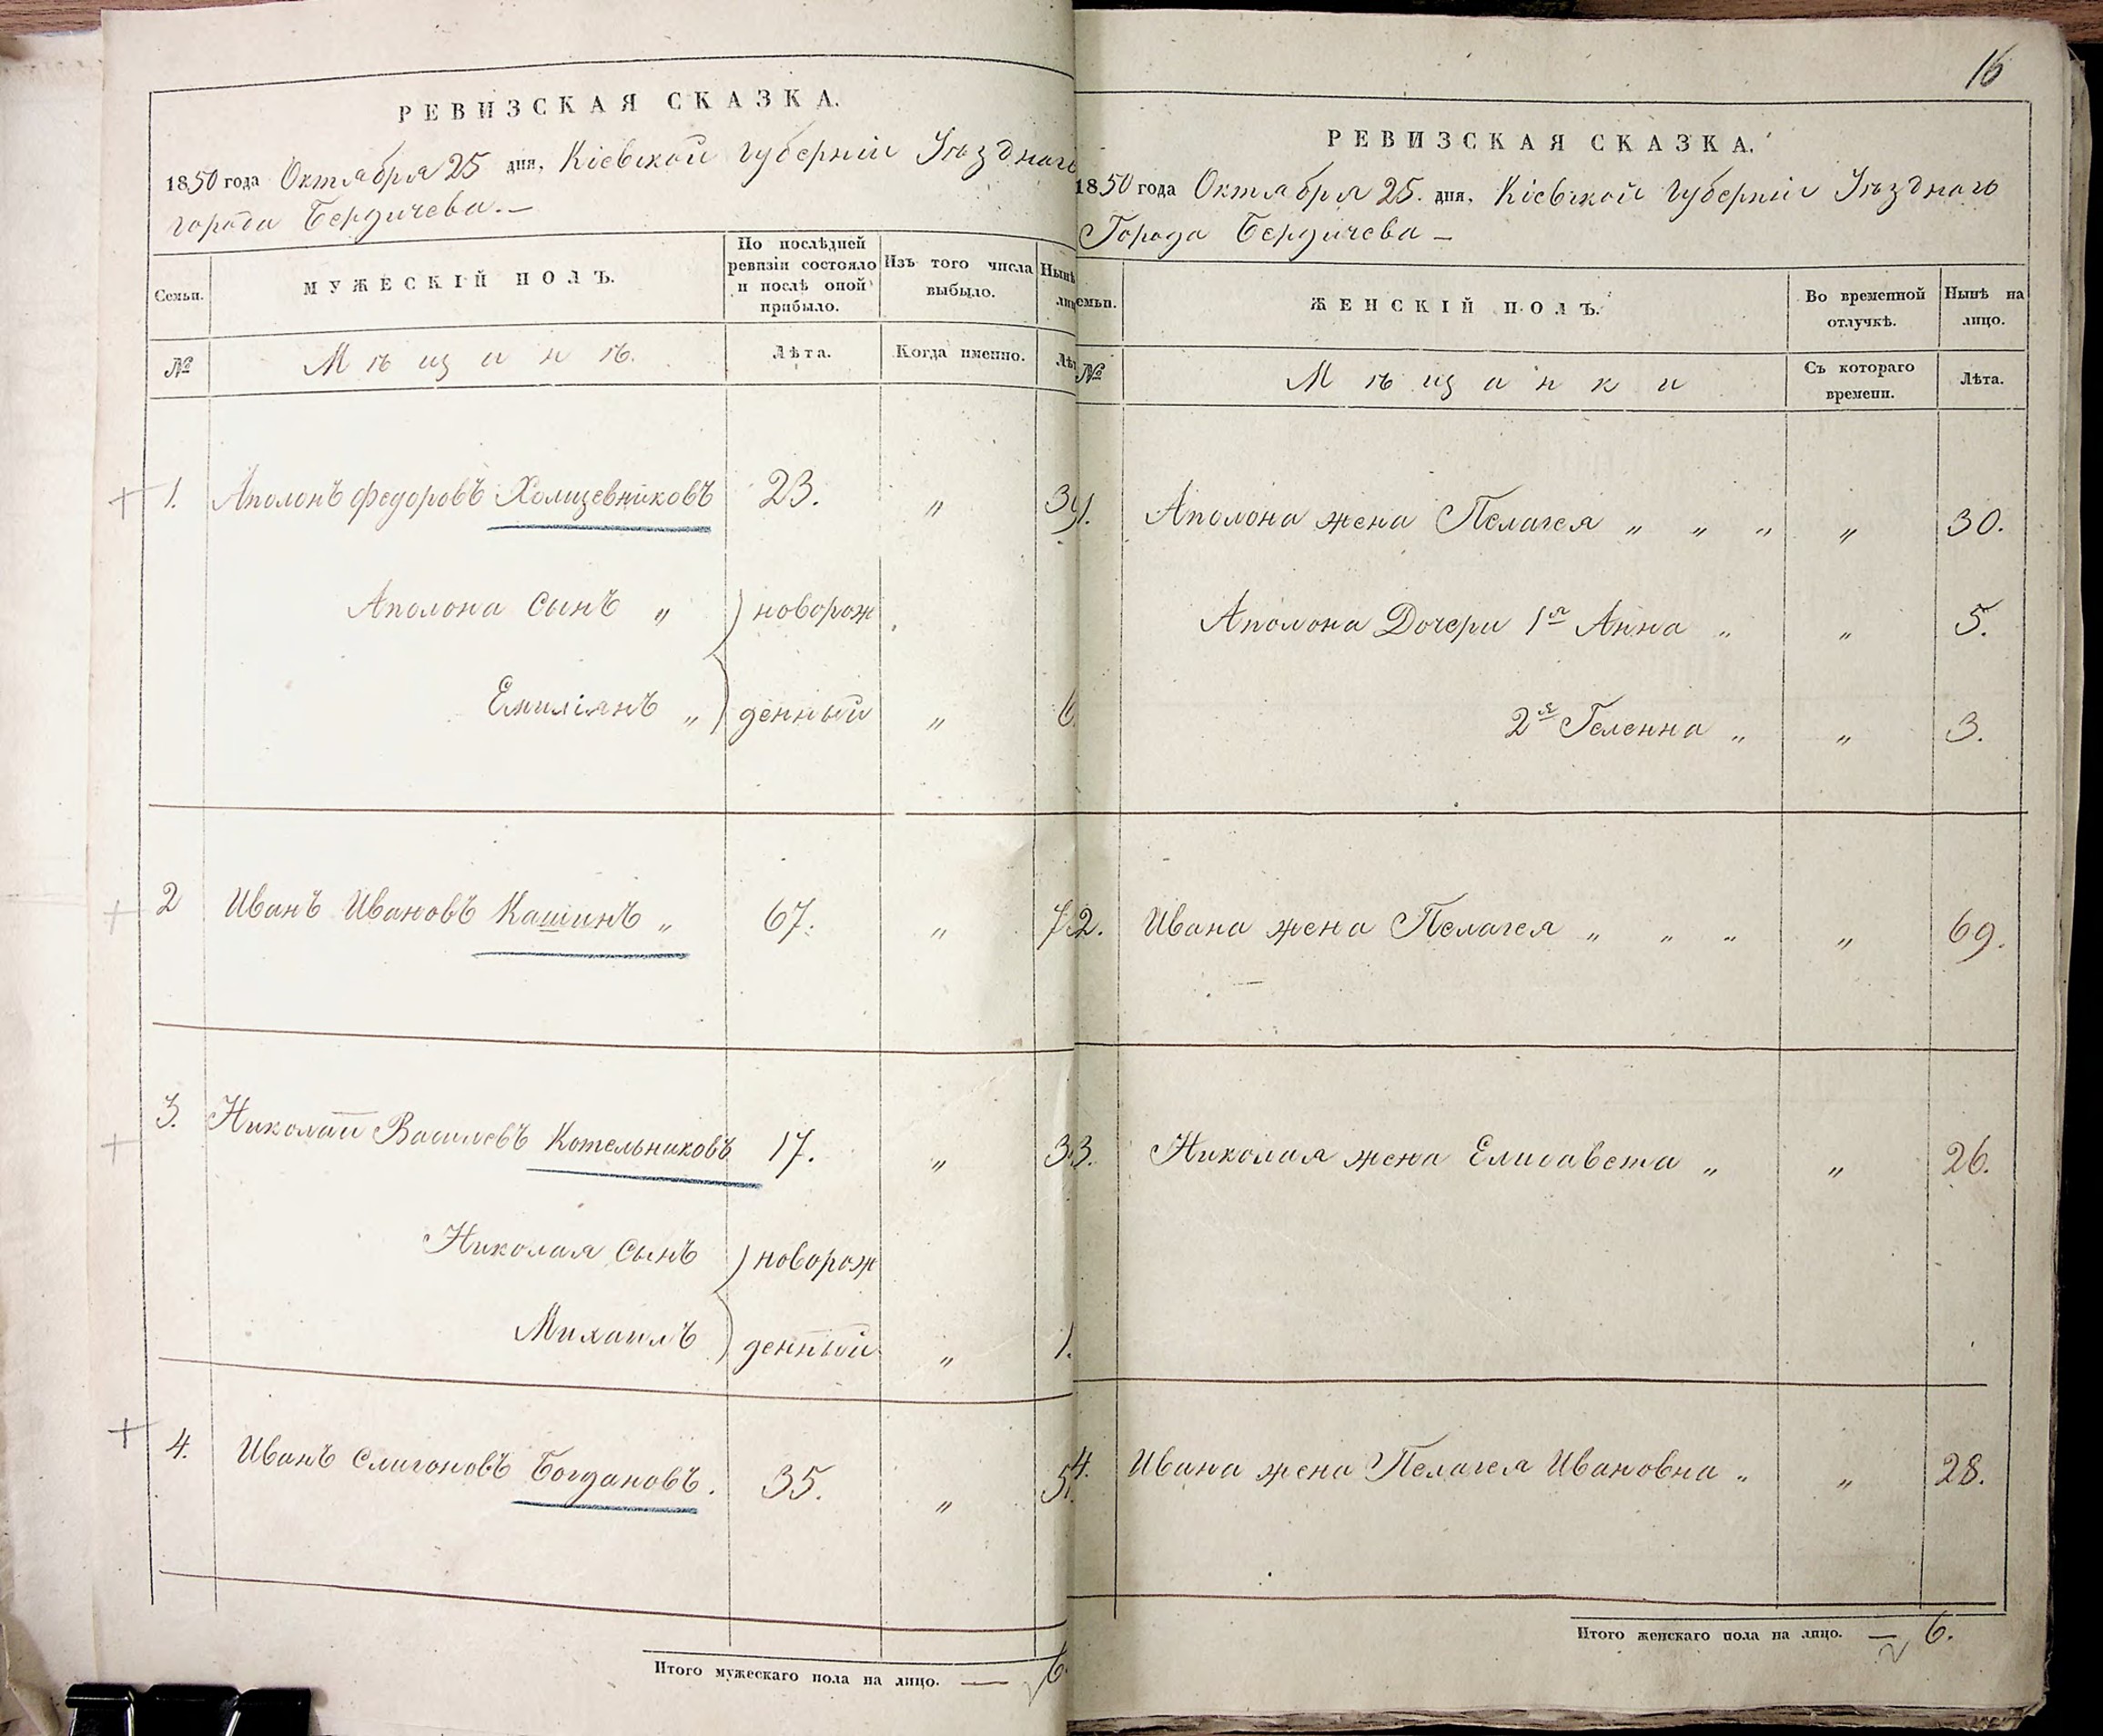 РЕВИЗСКАЯ СКАЗКА.
1850 года Октября 25 дня, Кіевской губерніи Уѣзднаго
города Бердичева.—
Семьи.
МУЖЕСКІЙ ПОЛЪ.
По послѣдней ревизіи состояло и послѣ оной прибыло.
Изъ того числа выбыло.
Нынѣ
№
Мѣщанѣ.
Лѣта.
Когда именно.
1. Аполонъ Федоровъ Холщевниковъ 23. „
Аполона сынъ „ новорож
Емиліянъ „ денный „ 6
2 Иванъ Ивановъ Кашинъ „ 67. „
3. Николай Василевъ Котельниковъ 17. „
Николая сынъ новорож
Михаилъ денный „ 1.
4. Иванъ Богдановъ. 35. „
Итого мужескаго пола на лицо. — 6.
16
РЕВИЗСКАЯ СКАЗКА.
1850 года Октября 25. дня, Кіевской Губерніи Уѣзднаго
Города Бердичева —
емьи.
ЖЕНСКІЙ ПОЛЪ.
Во временной отлучкѣ.
Нынѣ на лицо.
№
Мѣщанки
Съ котораго времени.
Лѣта.
1. Аполона жена Пелагея „ „ „ „ 30.
Аполона Дочери 1я Анна „ „ 5.
2я Геленна „ „ 3.
2. Ивана жена Пелагея „ „ „ „ 69.
3. Николая жена Елисавета „ „ 26.
4. Ивана жена Пелагея Ивановна „ „ 28.
Итого женскаго пола на лицо. — 6.